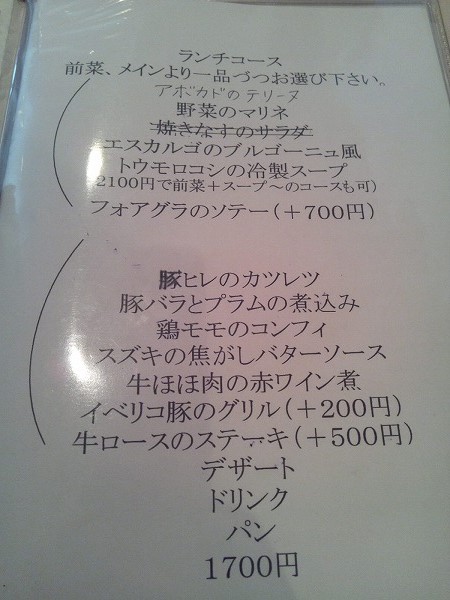 ランチコース
前菜、メインより一品づつお選び下さい。
アボカドのテリーヌ
野菜のマリネ
焼きなすのサラダ
エスカルゴのブルゴーニュ風
トウモロコシの冷製スープ
2100円で前菜＋スープ～のコースも可)
フォアグラのソテー(＋700円)
豚ヒレのカツレツ
豚バラとプラムの煮込み
鶏モモのコンフィ
スズキの焦がしバターソース
牛ほほ肉の赤ワイン煮
イベリコ豚のグリル(＋200円)
牛ロースのステーキ(＋500円)
デザート
ドリンク
パン
1700円